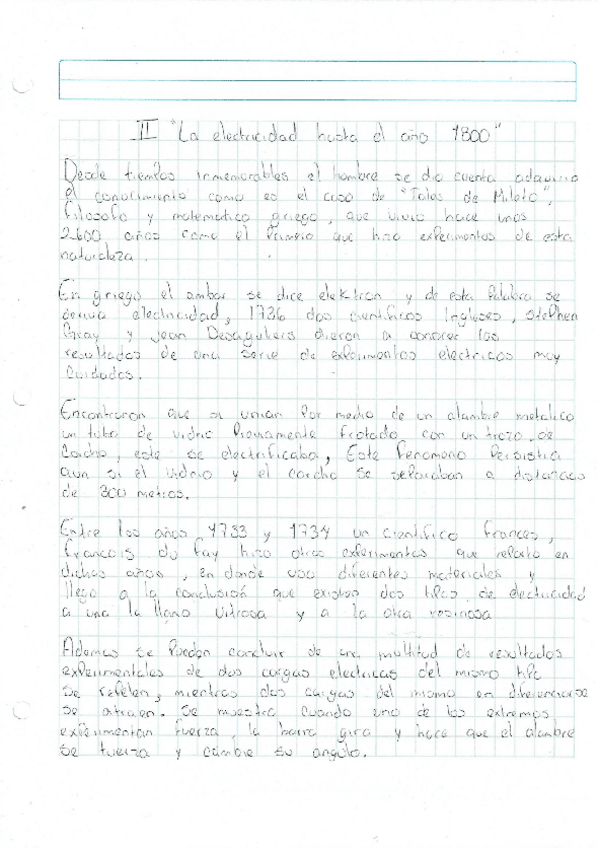 II "La electricidad hasta el año 1800"
Desde tiempos inmemorables el hombre se dio cuenta adquirio
el conocimiento como es el caso de "Tales de Mileto",
filosofo y matematico griego, que vivio hace unos
2600 años como el Primero que hizo experimentos de esta
naturaleza.
En griego el ambar se dice elektron y de esta Palabra se
deriva electricidad, 1736 dos cientificos Ingleses, Stephen
Gray y Jean Desaguliers dieron a conocer los
resultados de una serie de experimentos electricos muy
Cuidados.
Encontraron que si unian Por medio de un alambre metalico
un tubo de vidrio Previamente frotado con un trozo de
Corcho, este se electrificaba, Este Fenomeno Persistia
aun si el vidrio y el corcho se separaban a distancias
de 300 metros.
Entre los años 1733 y 1734 un cientifico Frances,
Francois du Fay hizo otros experimentos que relato en
dichos años, en donde uso diferentes materiales y
llego a la conclusión que existen dos tipos de electricidad
a una la llamo Vitrosa y a la otra resinosa
Ademas se Pueden concluir de una multitud de resultados
experimentales de dos cargas electricas del mismo tipo
se repelen, mientras dos cargas del mismo en diferencia se
se atraen. Se muestra Cuando uno de los extremos
experimentan fuerza, la barra gira y hace que el alambre
se tuerza y cambie su angulo.